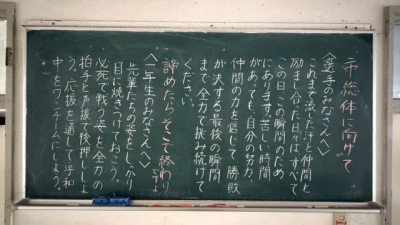 総体に向けて
〈選手のみなさんへ〉
これまで流した汗と仲間と
励まし合った日々はすべて
この日、この瞬間のため
にあります。苦しい時間
があっても、自分の努力、
仲間の力を信じて勝敗
が決する最後の瞬間
まで全力で挑み続けて
ください。
諦めたらそこで終わり
ですよ
〈一年生のみなさんへ〉
先輩たちの姿をしっかり
目に焼きつけておこう。
必死で戦う姿を全力の
拍手と声援で後押ししよ
う。応援を通して
中をワンチームにしよう。